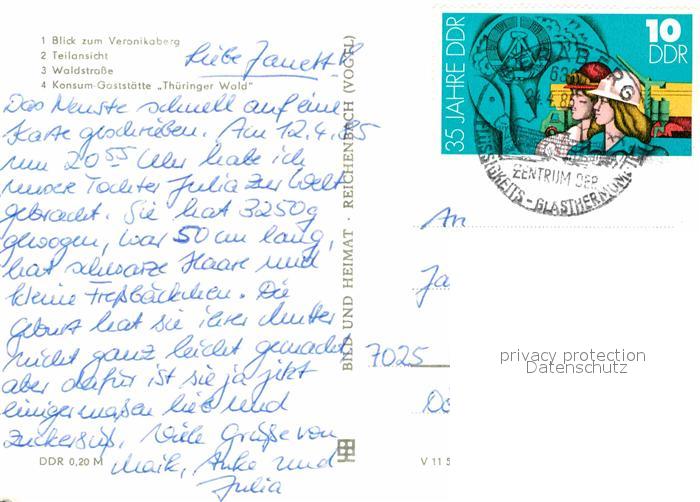 1 Blick zum Veronikaberg
2 Teilansicht
3 Waldstraße
4 Konsum-Gaststätte „Thüringer Wald"
Liebe Janett
Das Neuste schnell auf eine
Karte geschrieben. Am 12.4.85
um 20⁵⁵ Uhr habe ich
unsere Tochter Julia zur Welt
gebracht. Sie hat 3250g
gewogen, war 50 cm lang,
hat schwarze Haare und
kleine Freßbäckchen. Die
Geburt hat sie ihrer Mutter
nicht ganz leicht gemacht
aber dafür ist sie ja jetzt
einigermaßen lieb und
zuckersüß. Viele Grüße von
Maik, Anke und
Julia
DDR 0,20 M
BILD UND HEIMAT · REICHENBACH (VOGTL)
35 JAHRE DDR
10
DDR
ZENTRUM DER
GLASTHERMOMETE
An
Ja
7025
V 11 5
privacy protection
Datenschutz